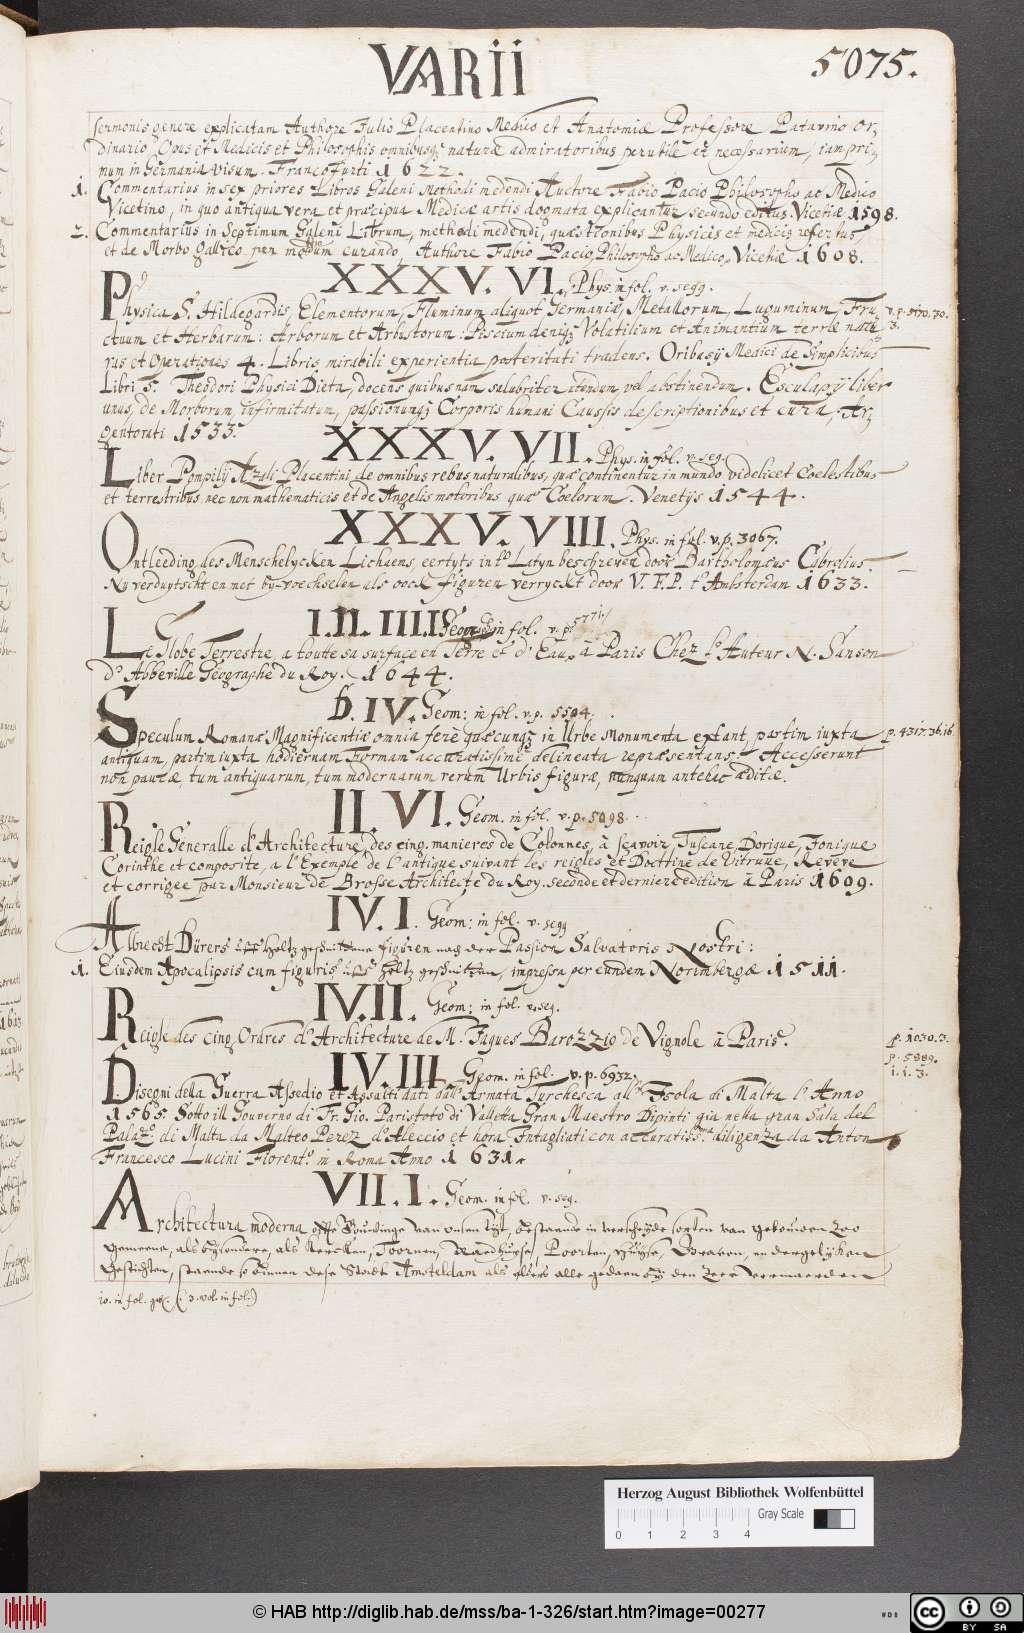 VARII
5075.
sermonis genere explicatam Authore Julio Placentino Medico et Anatomiæ Professore Patavino Or,
dinario, Opus et Medicis et Philosophis omnibusq naturæ admiratoribus perutile et necessarium, iam pri,
mum in Germania visum. Francofurti 1622.
1. Commentarius in sex priores Libros Galeni Methodi medendi Auctore Fabio Pacio Philosopho ac Medico
Vicetino, in quo antiqua vera et præcipua Medicæ artis dogmata explicantur secundo editus. Vicetiæ 1598.
2. Commentarius in Septimum Galeni Librum, methodi medendi, quæstionibus Physicis et medicis refertus
et de Morbo Gallico per modum curando, Authore Fabio Pacio, Philosopho ac Medico, Vicetiæ 1608.
XXXV. VI. Phys. in fol. v. segg.
Physica S. Hildegardis, Elementorum, Fluminum aliquot Germaniæ, Metallorum, Leguminum, Fru,
ctuum et Herbarum: Arborum et Arbustorum: Piscium deniq Volatilium et Animantium terræ natu
ras et Operationes 4. Libris mirabili experientia posteritati tradens. Oribasij Medici de Symplicibus
Libri 5. Theodori Physici Dieta, docens quibusnam salubriter utendum vel abstinendum. Esculapij liber
unus, de Morborum, infirmitatum, passionumq Corporis humani Caussis descriptionibus et cura; Ar,
gentorati 1533.
XXXV. VII. Phys. in fol. v. seg.
Liber Pompilij Azali Placentini de omnibus rebus naturalibus, quæ continentur in mundo videlicet Coelestibus
et terrestribus nec non mathematicis et de Angelis motoribus quæ Coelorum. Venetijs 1544.
XXXV. VIII. Phys. in fol. v. p. 3067.
Ontleeding des Menschelycken Lichaems, eertyts int Latyn beschreven door Bartholomæus Cabrolius.
Nu verduytscht en met by-voechselen als oock figuren verryckt door V. F. P. t' Amsterdam 1633.
I. II. IIII. Geogr. in fol. v. p.
Le Globe Terrestre, a toutte sa surface en Terre et d'Eau, à Paris Chez l'Auteur N. Sanson
D'Abbeville Geographe du Roy. 1644.
IV. Geom: in fol. v. p. 5504.
Speculum Romanæ Magnificentiæ omnia ferè quæcunq in Urbe Monumenta extant, partim iuxta
antiquam, partim iuxta hodiernam Formam accuratissime delineata repræsentans. Accesserunt
non paucæ, tum antiquarum, tum modernarum rerum Urbis figuræ, nunquam antehac æditæ.
II. VI. Geom. in fol. v. p. 5098.
Reigle Generalle d'Architecture des cinq manieres de Colonnes, à scavoir, Tuscane, Dorique, Jonique
Corinthe et composite, a l'Exemple de l'antique suivant les reigles et Doctrine de Vitruue, Reveve
et corrigee par Monsieur de Brosse Architecte du Roy. seconde et derniere edition à Paris 1609.
IV. I. Geom: in fol. v. segg
Albrecht Dürers Holtz geschnittene figuren nach der Passion Salvatoris Nostri:
1. Eiusdem Apocalipsis cum figuris Holtz geschnitten, impressa per eundem Norimbergæ 1511.
IV. II. Geom: in fol. v. seg.
Reigle des cinq Ordres d'Architecture de M. Jaques Barozzio de Vignole à Paris.
IV. III Geom. in fol. v. p. 6932.
Disegni della Guerra Assedio et Assalti dati dall Armata Turchesca all' Isola di Malta l'Anno
1565. Sotto ill Gouverno di Fr. Gio. Parisoto di Valleta Gran Maestro Dipinti gia nella gran Sala del
Palazo. di Malta da Matteo Perez d'Aleccio et hora Intagliati con accuratiss. diligenza da Anton
Francesco Lucini Florento. in Roma Anno 1631.
VII. I. Geom. in fol. v. seg.
Architectura moderna ofte Bouwinge van onsen tyt, bestaende in verscheyde soorten van gebouwen zoo
gemeene, als bysondere, als Kercken, Toornen, Raedhuyse, Poorten, Huyse, Graven, en dergelijken
Gestichten, staende so binnen dese Stadt Amsteldam als elders alle gedaen by den zeer vermaerden
10. in fol. (: 3. vol. in fol.)
v. p. 5170. 30.
3.
p. 4317. 36. 16.
p. 1030. 3.
p. 5889.
1. 1. 3.
Herzog August Bibliothek Wolfenbüttel
Gray Scale
0 1 2 3 4
© HAB http://diglib.hab.de/mss/ba-1-326/start.htm?image=00277
WDB
cc BY SA